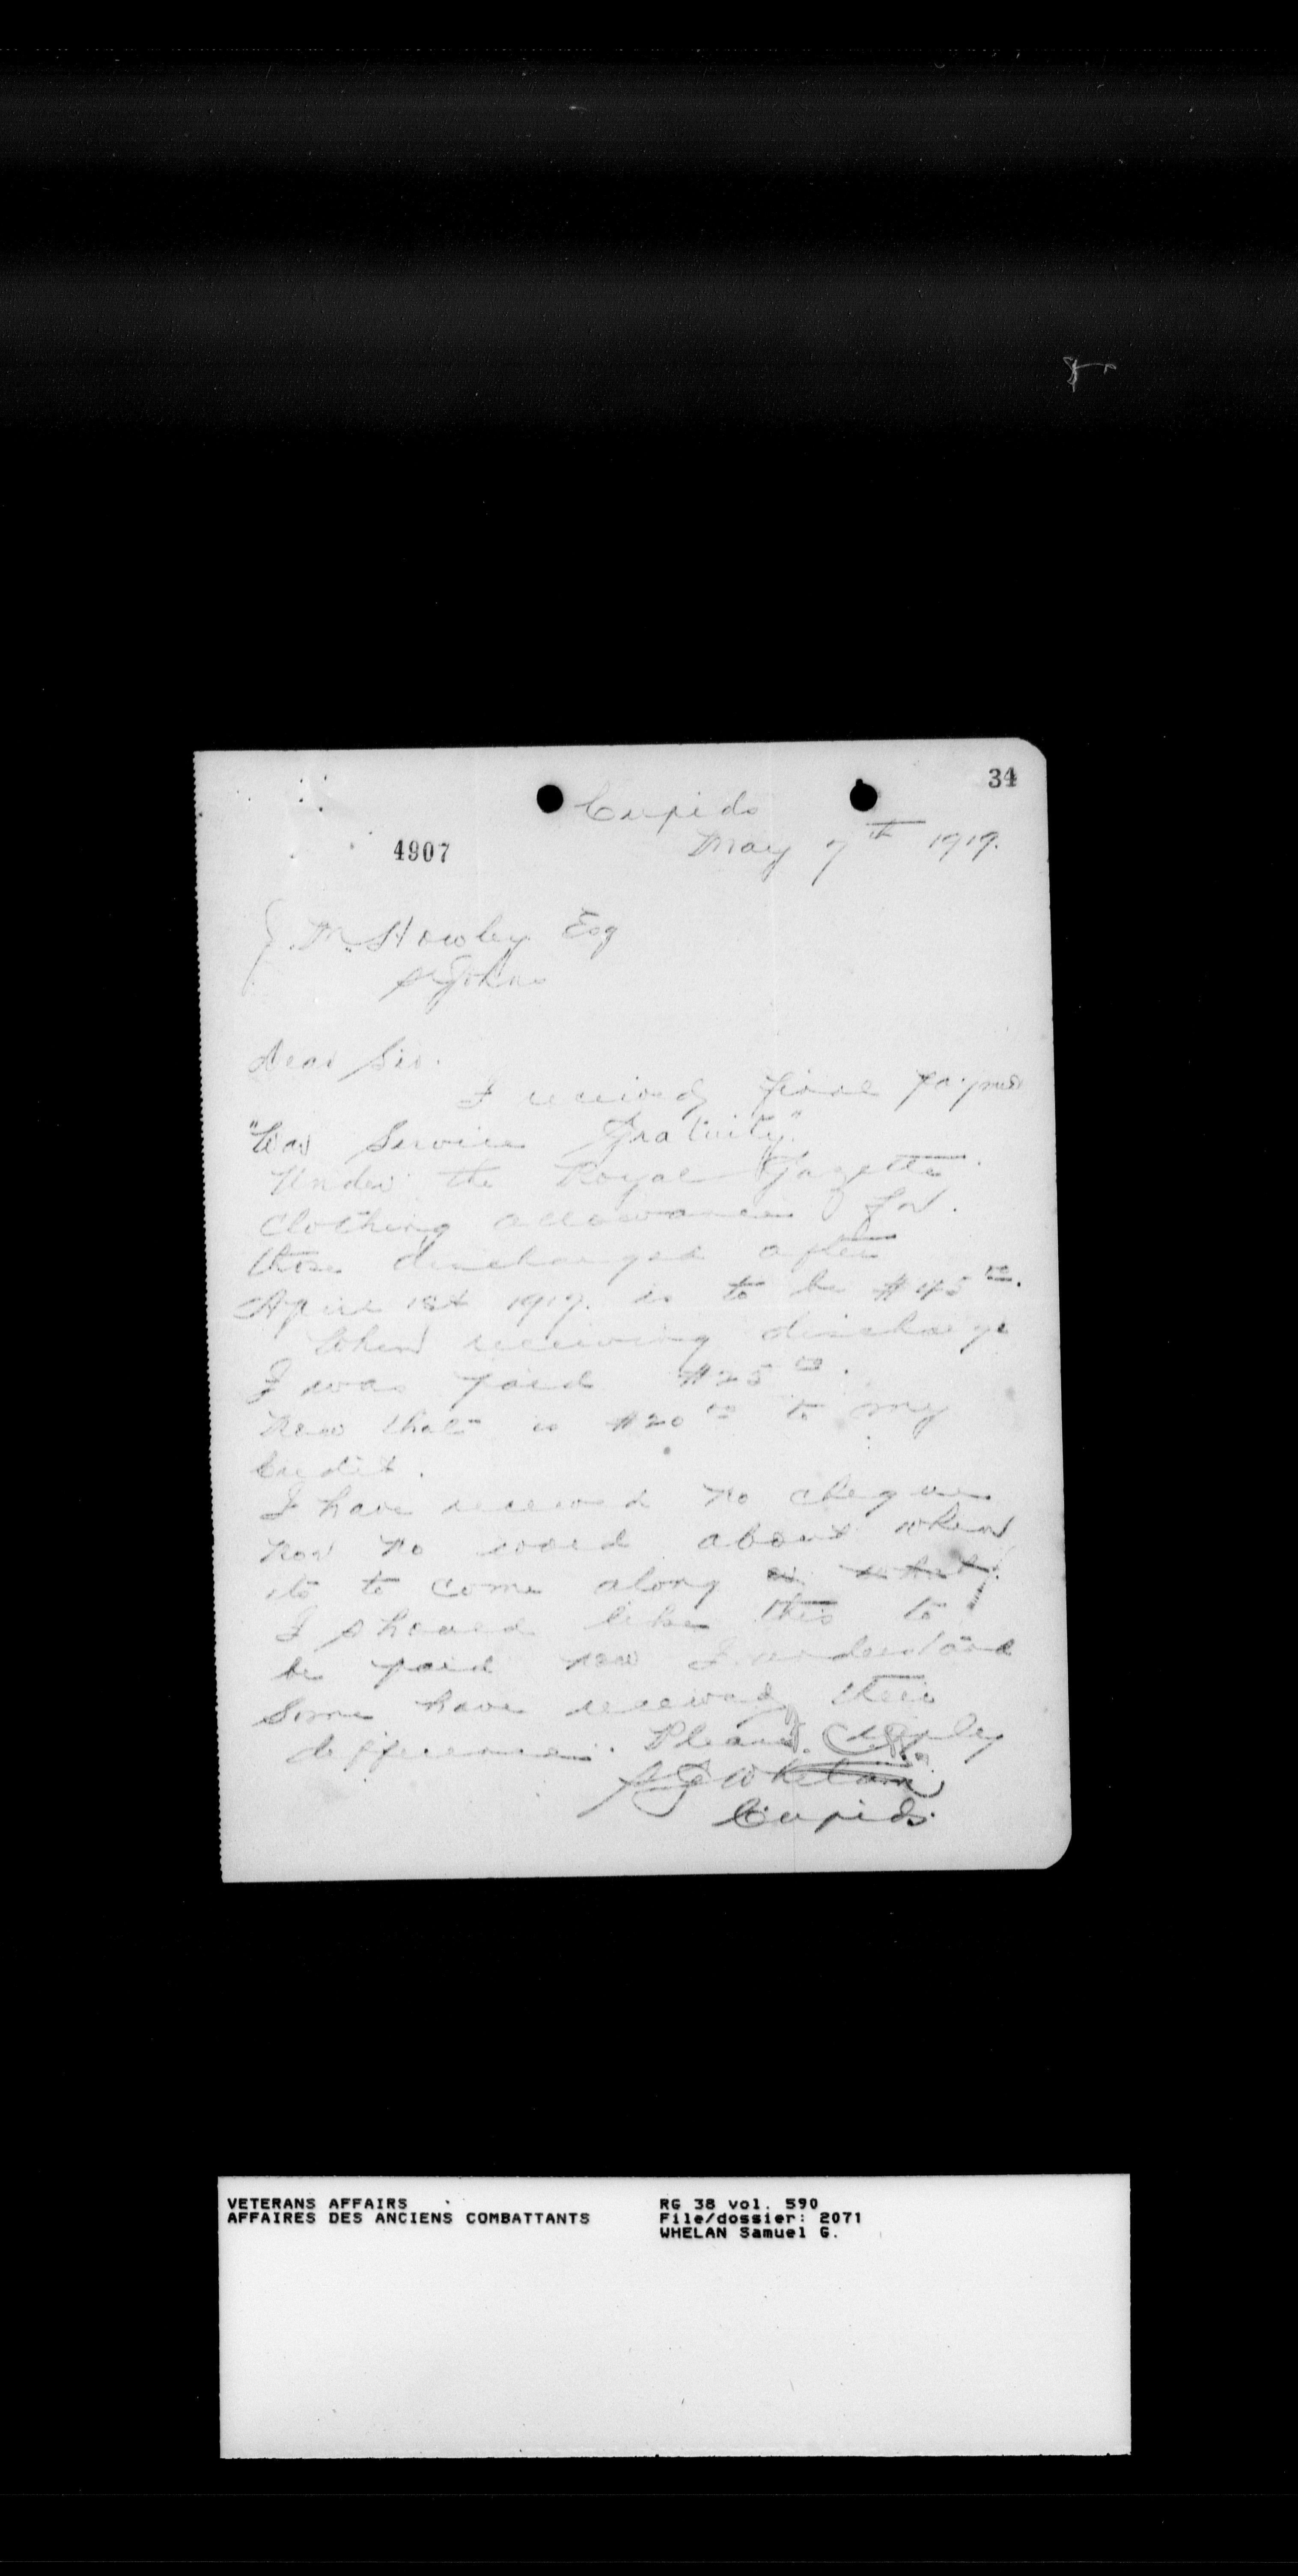 34
Cupids
4907
May 7th 1919.
J. M. Howley Esq
St Johns
Dear Sir.
I received final payment
"War Service Gratuity".
Under the Royal Gazette
Clothing allowance for
those discharged after
April 1st 1919. is to be $45.00.
When receiving discharge
I was paid $25.00.
Now that is $20.00 to my
Credit.
I have received no cheque
nor no word about when
its to come along or what.
I should like this to
be paid now I understand
Some have received their
difference. Please reply
S G Whelan
Cupids.
VETERANS AFFAIRS
AFFAIRES DES ANCIENS COMBATTANTS
RG 38 vol. 590
File/dossier: 2071
WHELAN Samuel G.